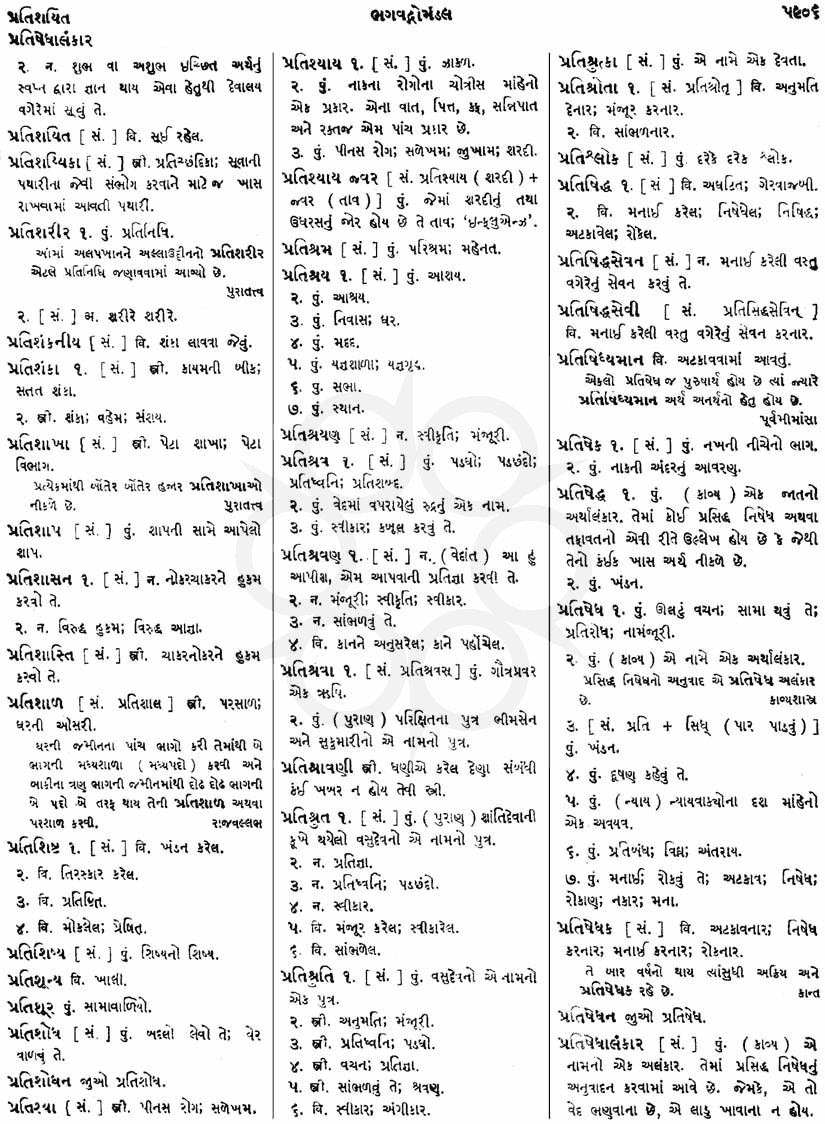 પ્રતિશયિત
પ્રતિષેધાલંકાર
ભગવદ્ગોમંડલ
૫૯૦૬
૨. ન. શુભ વા અશુભ ઇચ્છિત અર્થનું
સ્વપ્ન દ્વારા જ્ઞાન થાય એવા હેતુથી દેવાલય
વગેરેમાં સૂવું તે.
પ્રતિશયિત [ સં. ] વિ. સૂઈ રહેલ.
પ્રતિશય્યિકા [ સં. ] સ્ત્રી. પ્રતિચ્છંદિકા; સૂવાની
પથારીના જેવી સંભોગ કરવાને માટે જ ખાસ
રાખવામાં આવતી પથારી.
પ્રતિશરીર ૧. પું. પ્રતિનિધિ.
આમાં અલપખાનને અલ્લાઉદ્દીનનો પ્રતિશરીર
એટલે પ્રતિનિધિ જણાવવામાં આવ્યો છે.
પુરાતત્ત્વ
૨. [ સં. ] અ. શરીરે શરીરે.
પ્રતિશંકનીય [ સં. ] વિ. શંકા લાવવા જેવું.
પ્રતિશંકા ૧. [ સં. ] સ્ત્રી. કાયમની બીક;
સતત શંકા.
૨. સ્ત્રી. શંકા; વહેમ; સંશય.
પ્રતિશાખા [ સં. ] સ્ત્રી. પેટા શાખા; પેટા
વિભાગ.
પ્રત્યેકમાંથી બોંતેર બોંતેર હજાર પ્રતિશાખાઓ
નીકળે છે. પુરાતત્ત્વ
પ્રતિશાપ [ સં. ] પું. શાપની સામે આપેલો
શાપ.
પ્રતિશાસન ૧. [ સં. ] ન. નોકરચાકરને હુકમ
કરવો તે.
૨. ન. વિરુદ્ધ હુકમ; વિરુદ્ધ આજ્ઞા.
પ્રતિશાસ્તિ [ સં. ] સ્ત્રી. ચાકરનોકરને હુકમ
કરવો તે.
પ્રતિશાળ [ સં. પ્રતિશાલ ] સ્ત્રી. પરસાળ;
ઘરની ઓસરી.
ઘરની જમીનના પાંચ ભાગો કરી તેમાંથી બે
ભાગની મધ્યશાળા ( મધ્યપદો ) કરવી અને
બાકીના ત્રણ ભાગની જમીનમાંથી દોઢ દોઢ ભાગની
બે પદો બે તરફ થાય તેની પ્રતિશાળ અથવા
પરશાળ કરવી. રાજવલ્લભ
પ્રતિશિષ્ટ ૧. [ સં. ] વિ. ખંડન કરેલ.
૨. વિ. તિરસ્કાર કરેલ.
૩. વિ. પ્રતિષ્ઠિત.
૪. વિ. મોકલેલ; પ્રેષિત.
પ્રતિશિષ્ય [ સં. ] પું. શિષ્યનો શિષ્ય.
પ્રતિશૂન્ય વિ. ખાલી.
પ્રતિશૂર પું. સામાવાળિયો.
પ્રતિશોધ [ સં. ] પું. બદલો લેવો તે; વેર
વાળવું તે.
પ્રતિશોધન જુઓ પ્રતિશોધ.
પ્રતિશ્યા [ સં. ] સ્ત્રી. પીનસ રોગ; સળેખમ.
પ્રતિશ્યાય ૧. [ સં. ] પું. ઝાકળ.
૨. પું. નાકના રોગોના ચોત્રીસ માંહેનો
એક પ્રકાર. એના વાત, પિત્ત, કફ, સન્નિપાત
અને રક્તજ એમ પાંચ પ્રકાર છે.
૩. પું. પીનસ રોગ; સળેખમ; જુખામ; શરદી.
પ્રતિશ્યાય જ્વર [ સં. પ્રતિશ્યાય ( શરદી ) +
જ્વર ( તાવ ) ] પું. જેમાં શરદીનું તથા
ઉધરસનું જોર હોય છે તે તાવ; ‘ઇન્ફ્લુએન્ઝા’.
પ્રતિશ્રમ [ સં. ] પું. પરિશ્રમ; મહેનત.
પ્રતિશ્રય ૧. [ સં. ] પું. આશય.
૨. પું. આશ્રય.
૩. પું. નિવાસ; ઘર.
૪. પું. મદદ.
૫. પું. યજ્ઞશાળા; યજ્ઞગૃહ.
૬. પું. સભા.
૭. પું. સ્થાન.
પ્રતિશ્રયણ [ સં. ] ન. સ્વીકૃતિ; મંજૂરી.
પ્રતિશ્રવ ૧. [ સં. ] પું. પડઘો; પડછંદો;
પ્રતિધ્વનિ; પ્રતિશબ્દ.
૨. પું. વેદમાં વપરાયેલું રુદ્રનું એક નામ.
૩. પું. સ્વીકાર; કબૂલ કરવું તે.
પ્રતિશ્રવણ ૧. [ સં. ] ન. ( વેદાંત ) આ હું
આપીશ, એમ આપવાની પ્રતિજ્ઞા કરવી તે.
૨. ન. મંજૂરી; સ્વીકૃતિ; સ્વીકાર.
૩. ન. સાંભળવું તે.
૪. વિ. કાનને અનુસરેલ; કાને પહોંચેલ.
પ્રતિશ્રવા ૧. [ સં. પ્રતિશ્રવસ ] પું. ગોત્રપ્રવર
એક ઋષિ.
૨. પું. ( પુરાણ ) પરિક્ષિતના પુત્ર ભીમસેન
અને સુકુમારીનો એ નામનો પુત્ર.
પ્રતિશ્રાવણી સ્ત્રી. ધણીએ કરેલ દેણા સંબંધી
કંઈ ખબર ન હોય તેવી સ્ત્રી.
પ્રતિશ્રુત ૧. [ સં. ] પું. ( પુરાણ ) શાંતિદેવાની
કૂખે થયેલો વસુદેવનો એ નામનો પુત્ર.
૨. ન. પ્રતિજ્ઞા.
૩. ન. પ્રતિધ્વનિ; પડછંદો.
૪. ન. સ્વીકાર.
૫. વિ. મંજૂર કરેલ; સ્વીકારેલ.
૬. વિ. સાંભળેલ.
પ્રતિશ્રુતિ ૧. [ સં. ] પું. વસુદેવનો એ નામનો
એક પુત્ર.
૨. સ્ત્રી. અનુમતિ; મંજૂરી.
૩. સ્ત્રી. પ્રતિધ્વનિ; પડઘો.
૪. સ્ત્રી. વચન; પ્રતિજ્ઞા.
૫. સ્ત્રી. સાંભળવું તે; શ્રવણ.
૬. વિ. સ્વીકાર; અંગીકાર.
પ્રતિશ્રુત્કા [ સં. ] પું. એ નામે એક દેવતા.
પ્રતિશ્રોતા ૧. [ સં. પ્રતિશ્રોતૃ ] વિ. અનુમતિ
દેનાર; મંજૂર કરનાર.
૨. વિ. સાંભળનાર.
પ્રતિશ્લોક [ સં. ] પું. દરેકે દરેક શ્લોક.
પ્રતિષિદ્ધ ૧. [ સં. ] વિ. અઘટિત; ગેરવાજબી.
૨. વિ. મનાઈ કરેલ; નિષેધેલ; નિષિદ્ધ;
અટકાવેલ; રોકેલ.
પ્રતિષિદ્ધસેવન [ સં. ] ન. મનાઈ કરેલી વસ્તુ
વગેરેનું સેવન કરવું તે.
પ્રતિષિદ્ધસેવી [ સં. પ્રતિસિદ્ધસેવિન્ ]
વિ. મનાઈ કરેલી વસ્તુ વગેરેનું સેવન કરનાર.
પ્રતિષિધ્યમાન વિ. અટકાવવામાં આવતું.
એકલો પ્રતિષેધ જ પુરુષાર્થ હોય છે ત્યાં જ્યારે
પ્રતિષિધ્યમાન અર્થ અનર્થનો હેતુ હોય છે.
પૂર્વમીમાંસા
પ્રતિષેક ૧. [ સં. ] પું. નખની નીચેનો ભાગ.
૨. પું. નાકની અંદરનું આવરણ.
પ્રતિષેદ્ધ ૧. પું. ( કાવ્ય ) એક જાતનો
અર્થાલંકાર. તેમાં કોઈ પ્રસિદ્ધ નિષેધ અથવા
તફાવતનો એવી રીતે ઉલ્લેખ હોય છે કે જેથી
તેનો કંઈક ખાસ અર્થ નીકળે છે.
૨. પું. ખંડન.
પ્રતિષેધ ૧. પું. ઊલટું વચન; સામા થવું તે;
પ્રતિરોધ; નામંજૂરી.
૨. પું. ( કાવ્ય ) એ નામે એક અર્થાલંકાર.
પ્રસિદ્ધ નિષેધનો અનુવાદ એ પ્રતિષેધ અલંકાર
છે. કાવ્યશાસ્ત્ર
૩. [ સં. પ્રતિ + સિધ્ ( પાર પાડવું ) ]
પું. ખંડન.
૪. પું. દૂષણ કહેવું તે.
૫. પું. ( ન્યાય ) ન્યાયવાક્યોના દશ માંહેનો
એક અવયવ.
૬. પું. પ્રતિબંધ; વિઘ્ન; અંતરાય.
૭. પું. મનાઈ; રોકવું તે; અટકાવ; નિષેધ;
રોકાણ; નકાર; મના.
પ્રતિષેધક [ સં. ] વિ. અટકાવનાર; નિષેધ
કરનાર; મનાઈ કરનાર; રોકનાર.
તે બાર વર્ષનો થાય ત્યાંસુધી અક્રિય અને
પ્રતિષેધક રહે છે. કાન્ત
પ્રતિષેધન જુઓ પ્રતિષેધ.
પ્રતિષેધાલંકાર [ સં. ] પું. ( કાવ્ય ) એ
નામનો એક અલંકાર. તેમાં પ્રસિદ્ધ નિષેધનું
અનુવાદન કરવામાં આવે છે. જેમકે, એ તો
વેદ ભણવાના છે, એ લાડુ ખાવાના ન હોય.